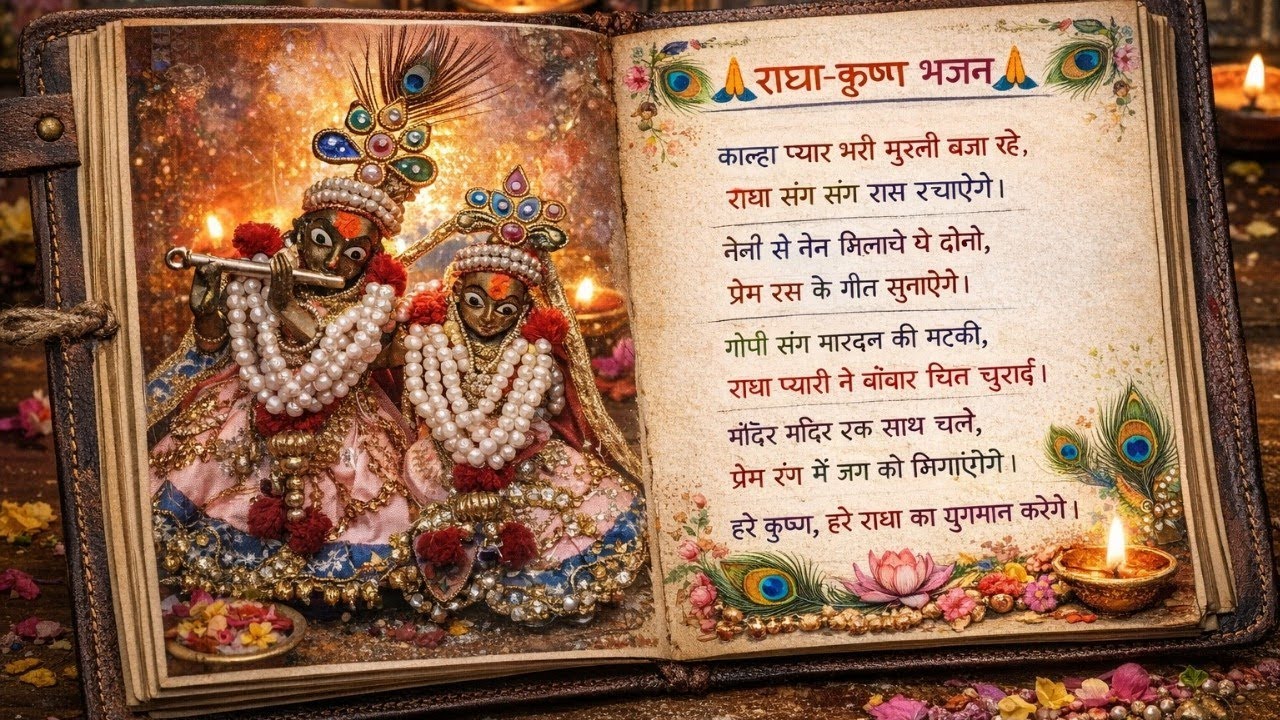 राधा-कृष्ण भजन
काल्हा प्यार भरी मुरली बजा रहे,
राधा संग संग रास रचाऐगे।
नेनी से नेन मिलाचे ये दोनो,
प्रेम रस के गीत सुनाऐगे।
गोपी संग मारदन की मटकी,
राधा प्यारी ने बांवार चित चुराई।
मंदिर मदिर रक साथ चले,
प्रेम रंग में जग को
हरे कृष्ण, हरे राधा का युगमान करेगे।